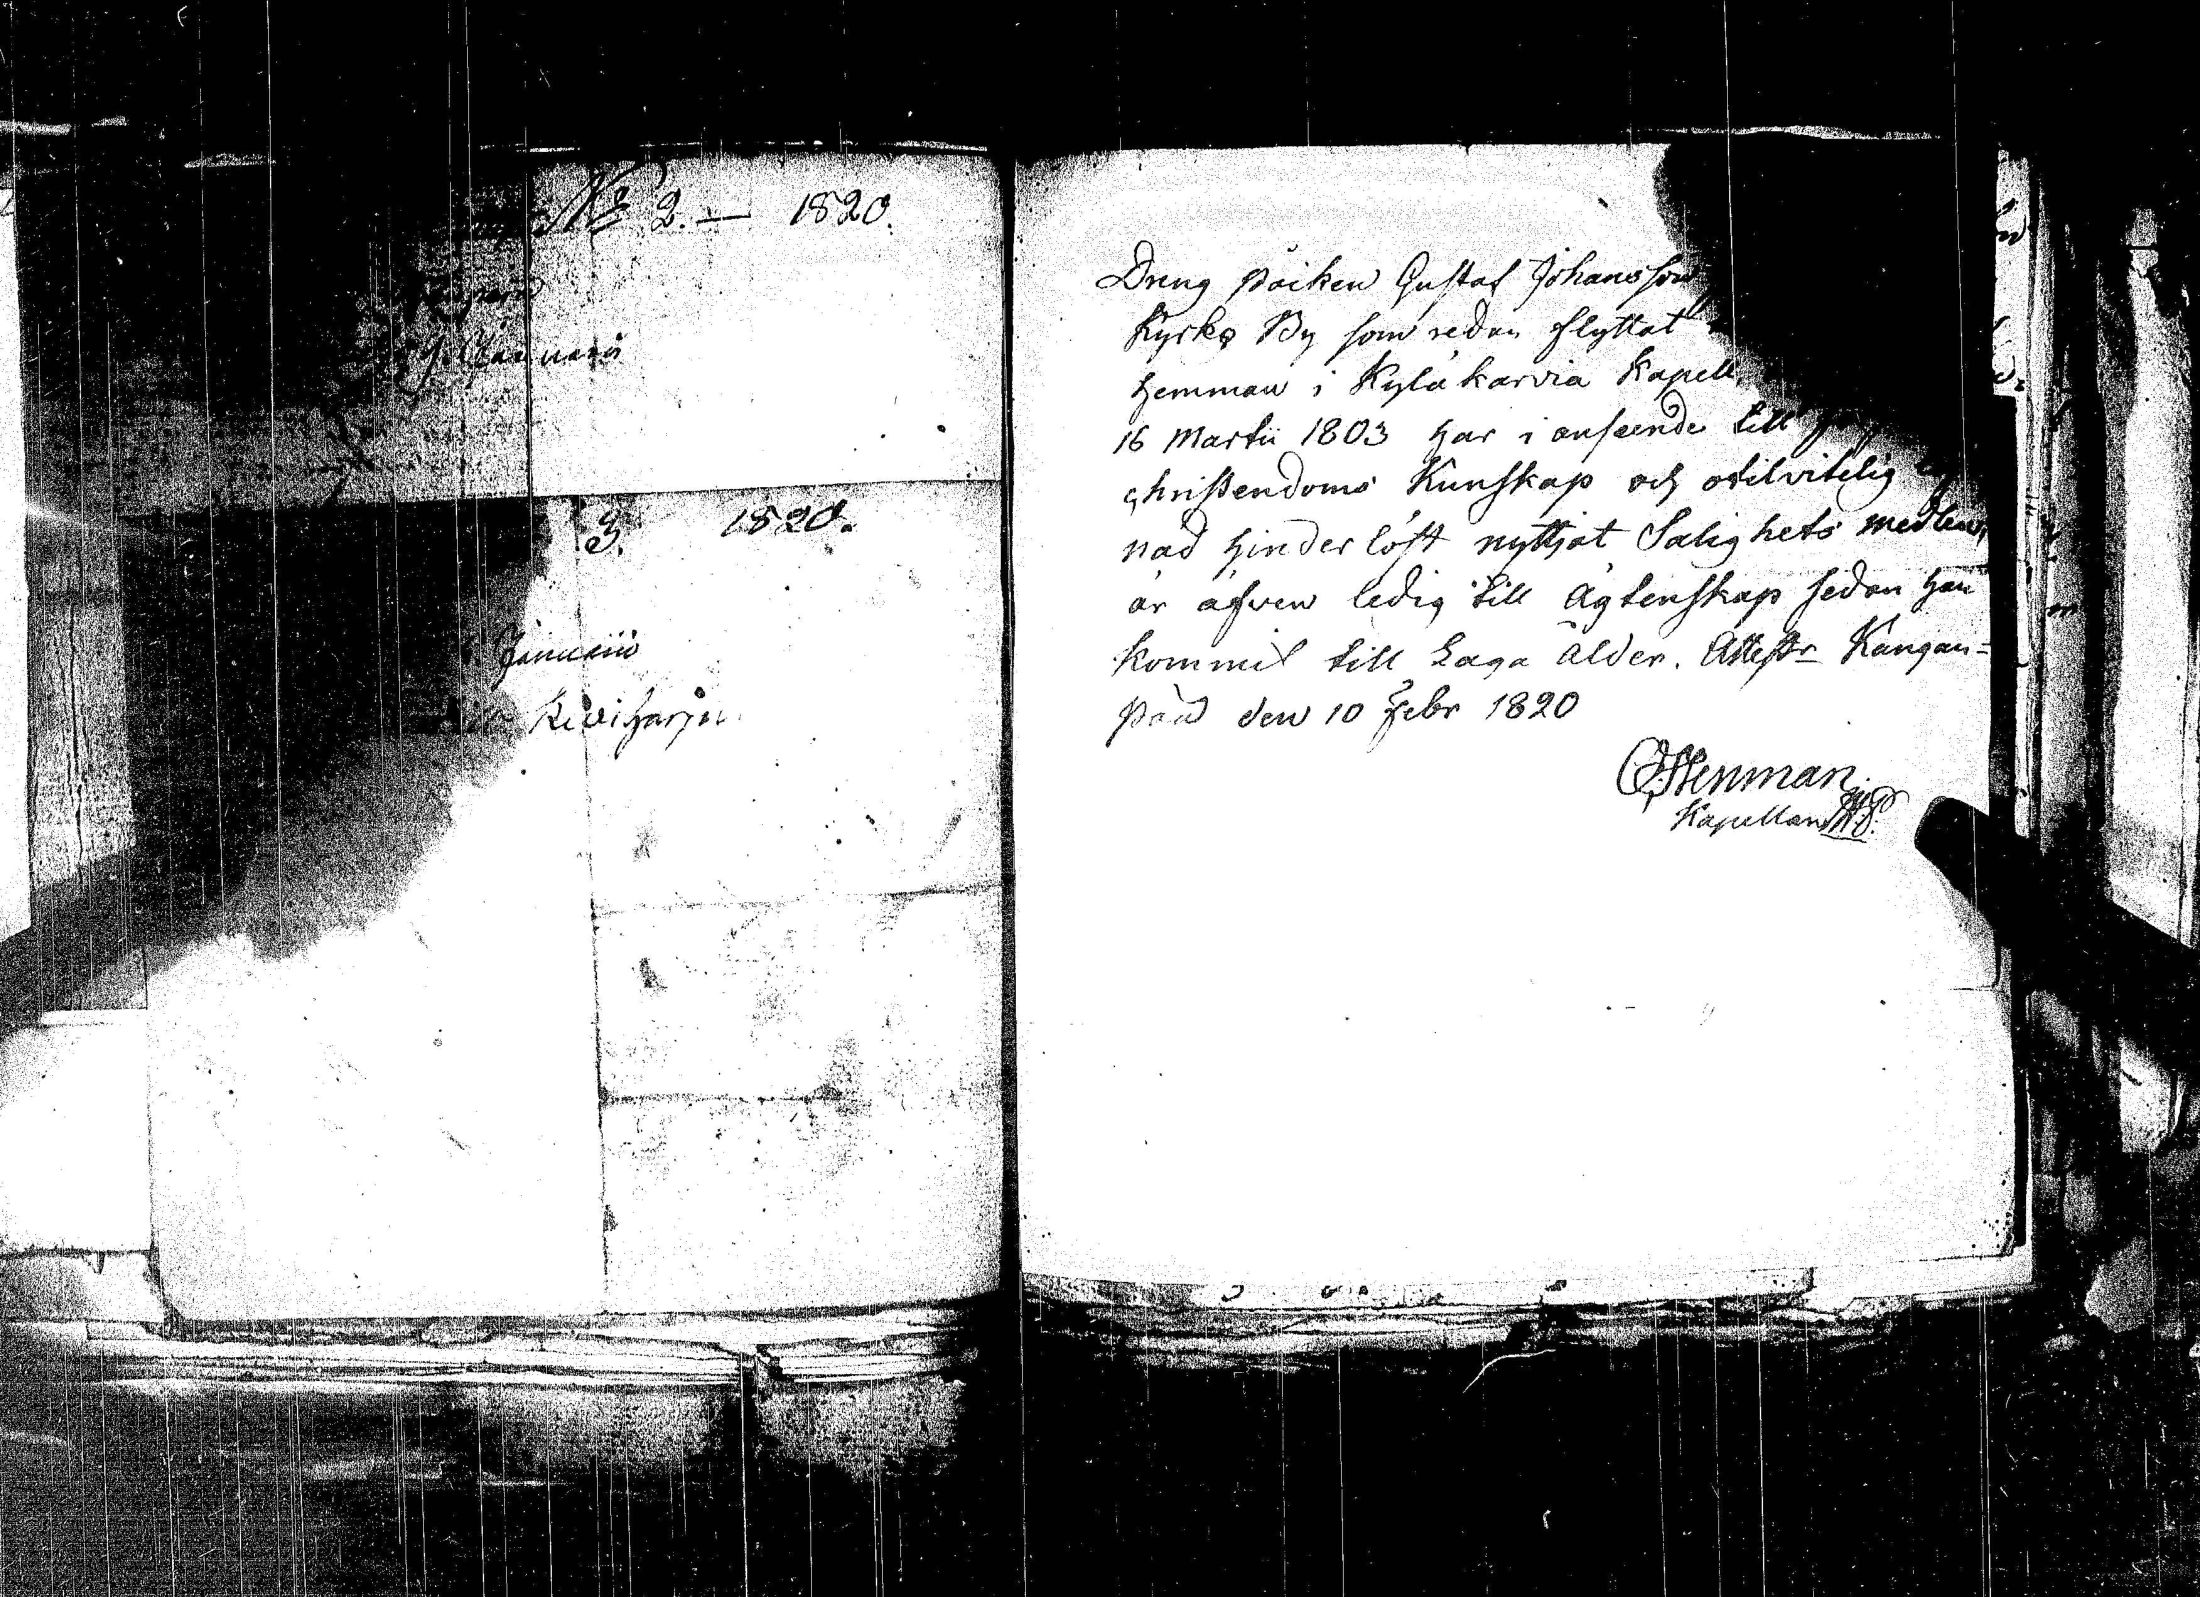 No 2. — 1820.
Januarii
3. 1820.
Januarii
Kiviharju
Dreng Poiken Gustaf Johansson
Kyrko By som redan flyttat
hemman i Kylä karvia Kapell,
16 Martii 1803 har i anseende till
christendoms Kunskap och otilvitelig
nad hinderlöst nyttjat Salighets medlen,
är äfven ledig till Ägtenskap sedan han
kommit till Laga Ålder. Attestr Kangan=
pää den 10 Febr 1820
Stenman.
Kapellan